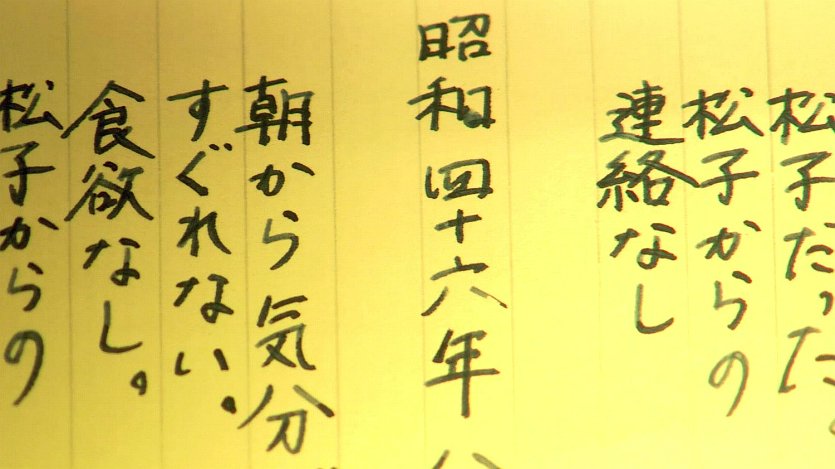 松子だった。
松子からの
連絡なし
昭和四十六年八
朝から気分
すぐれない。
食欲なし。
松子からの